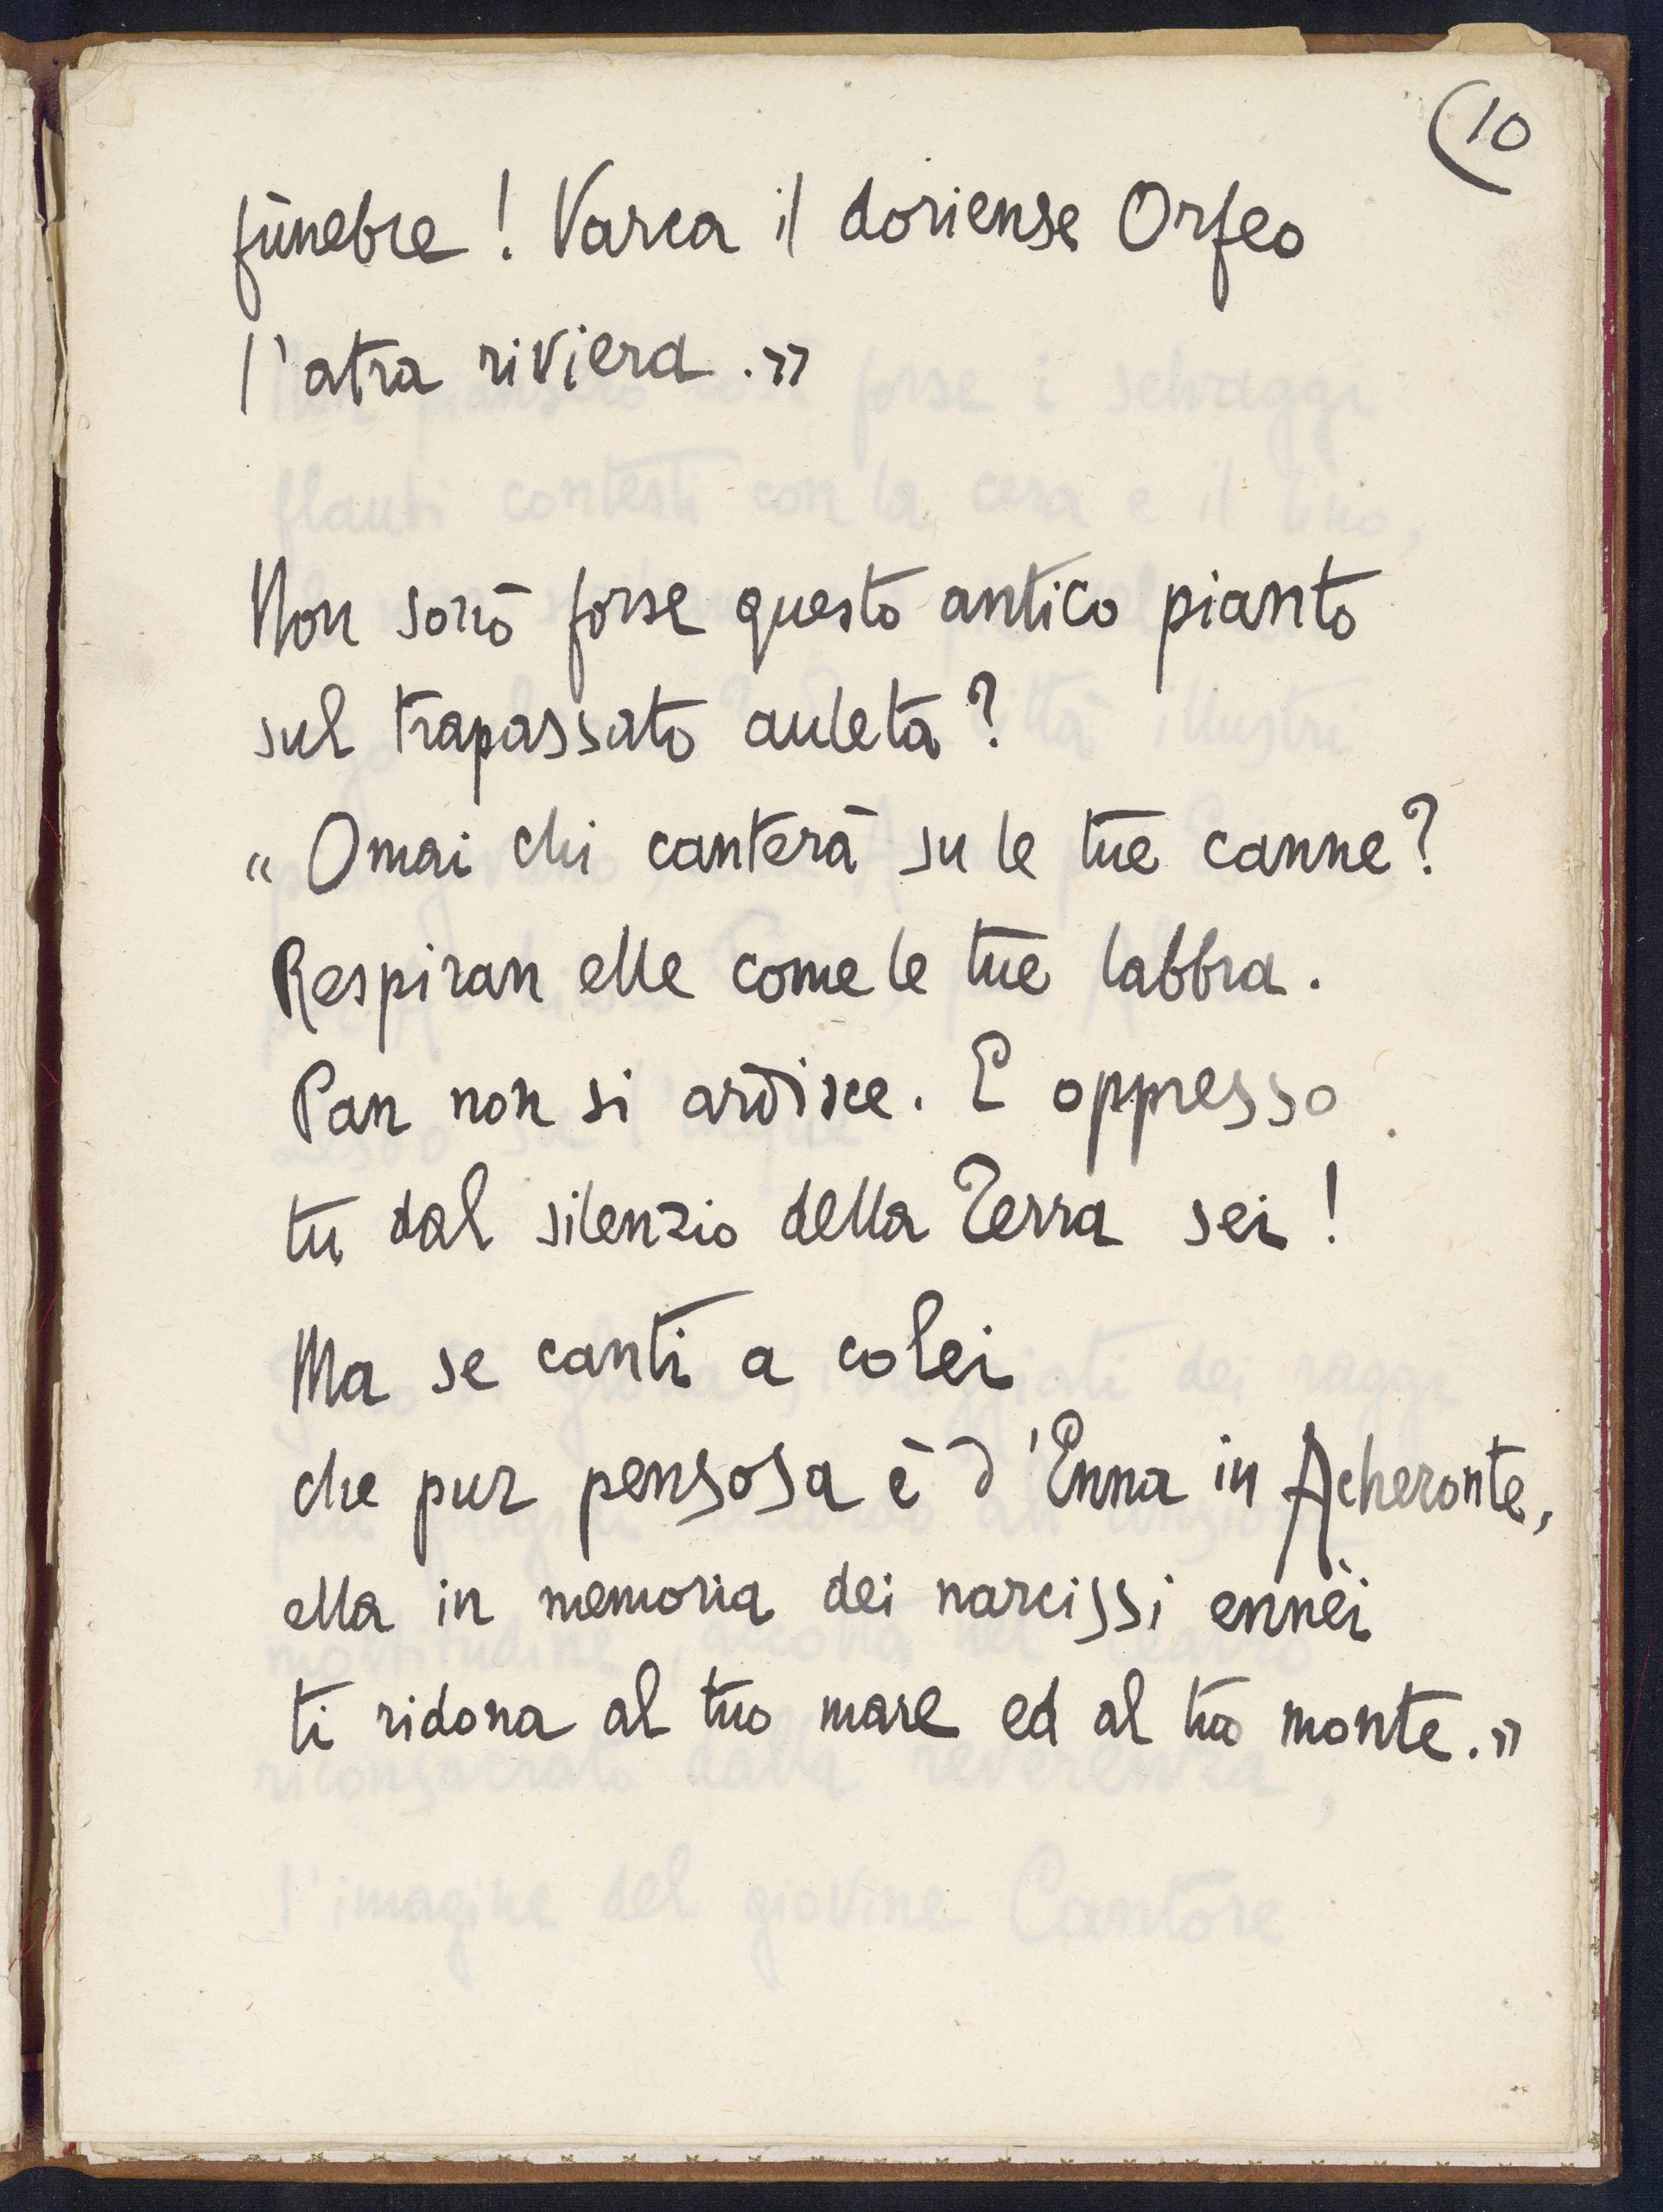 (10
fùnebre! Varca il doriense Orfeo
l'atra riviera.»
Non sonò forse questo antico pianto
sul trapassato auleta?
«Omai chi canterà su le tue canne?
Respiran elle come le tue labbra.
Pan non si ardisce. E oppresso
tu dal silenzio della Terra sei!
Ma se canti a colei
che pur pensosa è d'Enna in Acheronte,
ella in memoria dei narcissi ennèi
ti ridona al tuo mare ed al tuo monte.»